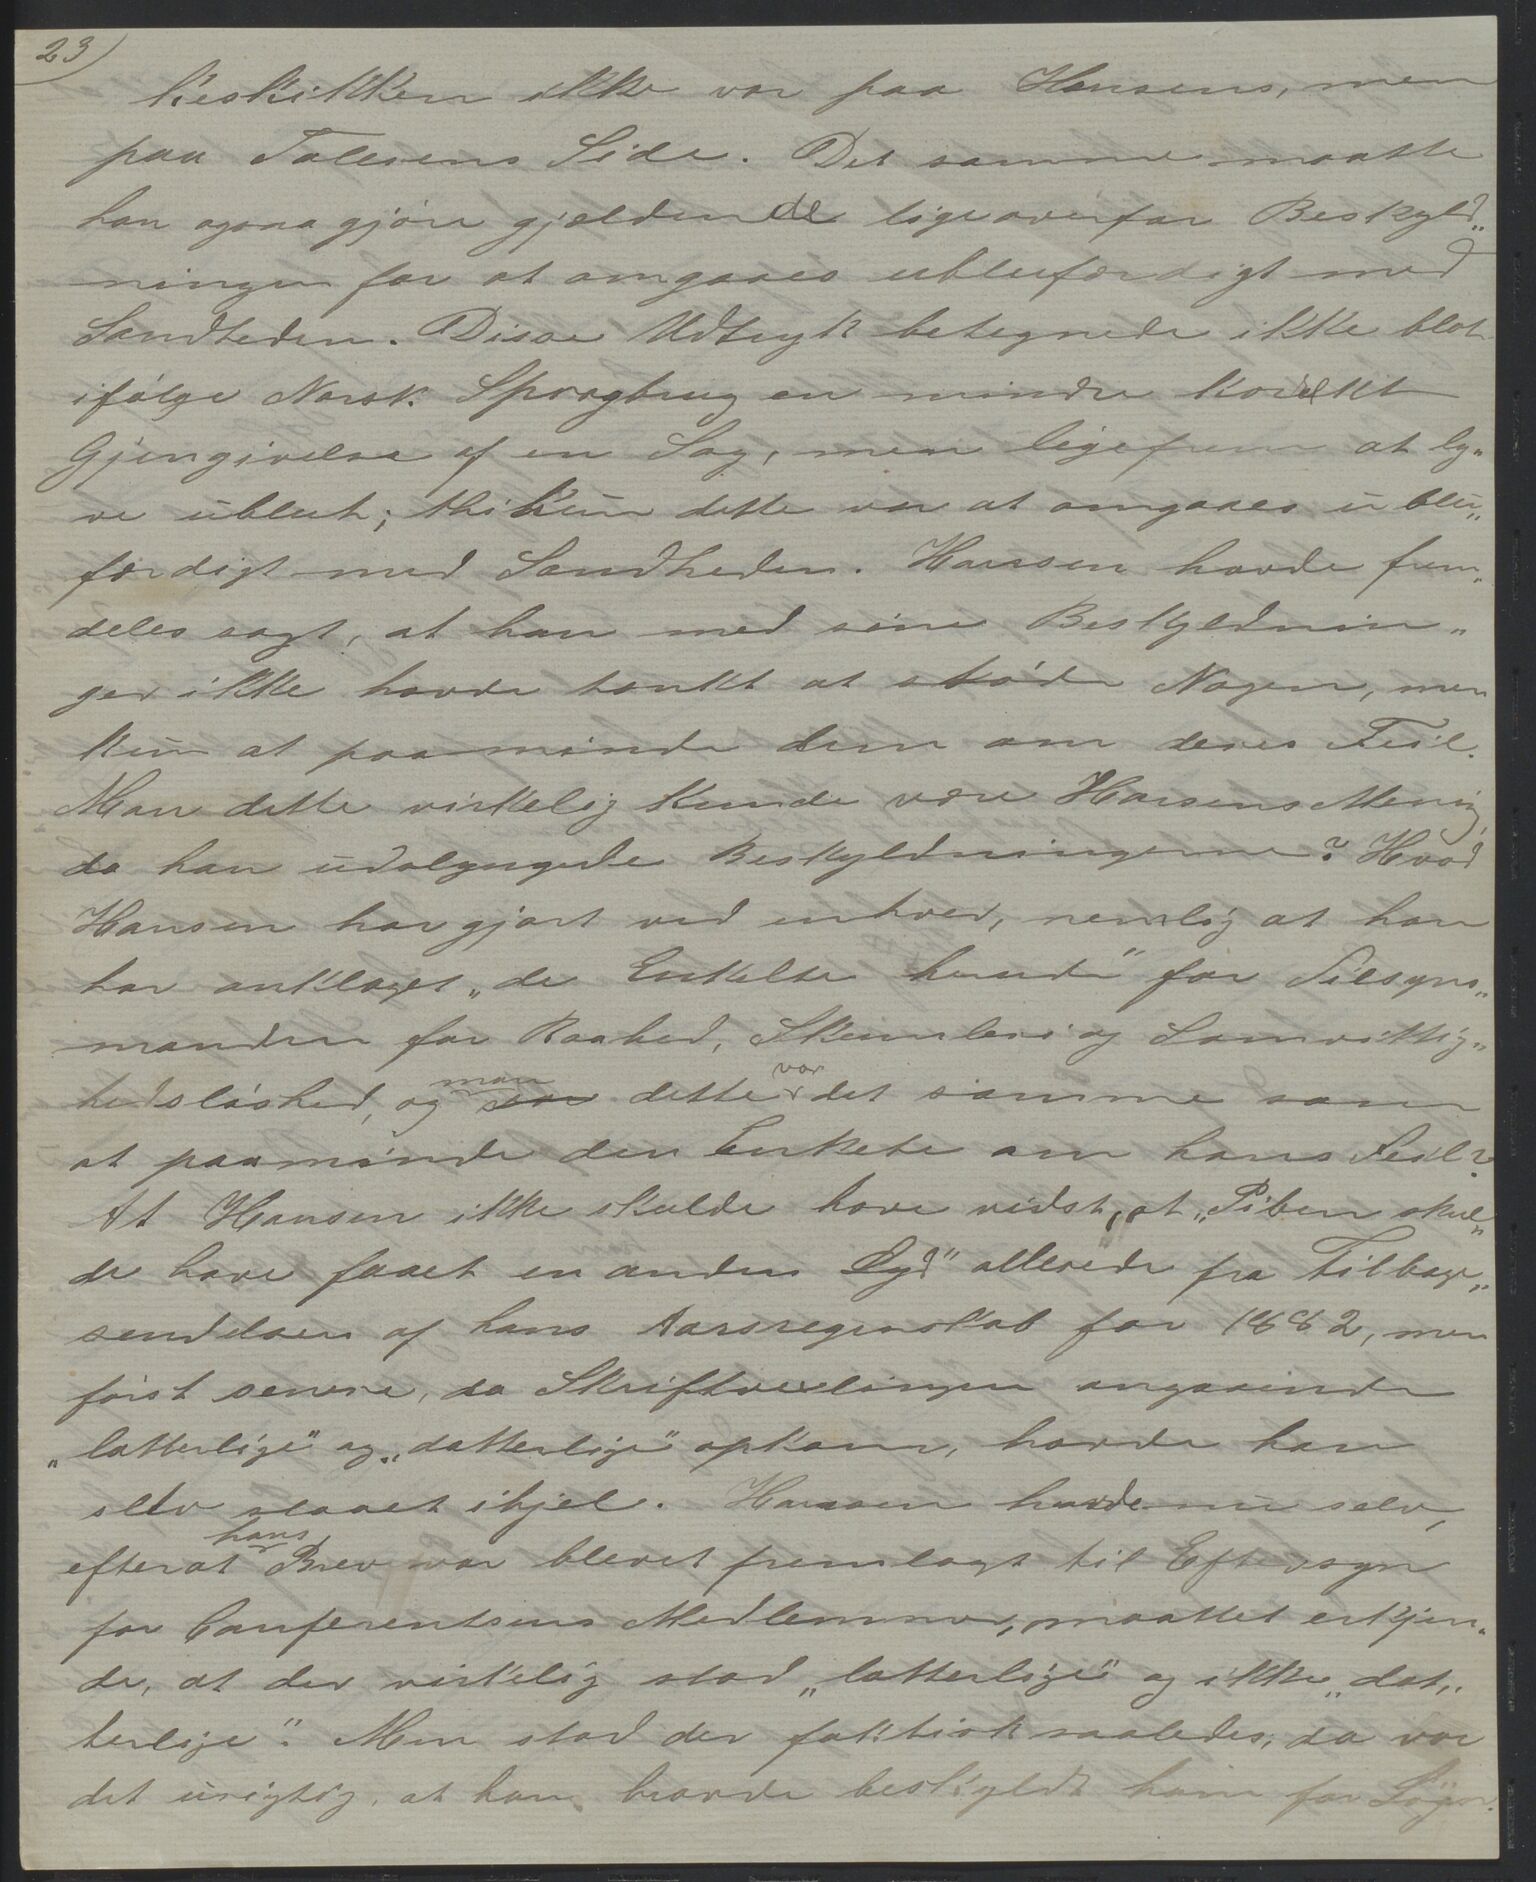 23)
keskikken ikke var paa Hansens, men
paa Talerens Side. Det samme maatte
han ogsaa gjøre gjeldende ligeoverfor Beskyld„
ningen for at omgaaes ubluferdigt med
Sandheden. Disse Udtryk betegnede ikke blot
ifølge Norsk Sprogbrug en mindre korekt
Gjengivelse af en Sag, men ligefrem at ly„
ve ublut; thi kun dette var at omgaaes ublu„
færdigt med Sandheden. Hansen havde frem„
deles sagt, at han med sine Beskyldnin„
ger ikke havde tænkt at støde Nogen, men
kun at paaminde dem om deres Feil.
Mon dette virkelig kunde være Hansens Mening,
da han udslyngede Beskyldningerne? Hvad
Hansen har gjort ved enhver, nemlig at han
har anklaget „de Enkelte herude" for Tilsyns„
manden for Raahed, Skumleri og Samvittig„
hedsløshed, og mon dette var det samme som
at paaminde den Enkelte om hans Feil?
At Hansen ikke skulde have vidst, at „Piben skul„
de have faaet en anden Lyd" allerede fra Tilbage„
sendelsen af hans Aarsregnskab for 1882, men
først senere, da Skriftvexlingen angaaende
„latterlige" og „datterlige" opkom, havde han
selv slaaet ihjel. Hansen havde nu selv,
efterat hans Brev var blevet fremlagt til Eftersyn
for Conferentsens Medlemmer, maattet erkjen„
de, at der virkelig stod „latterlige" og ikke „dat„
terlige". Men stod der faktisk saaledes, da var
det urigtig, at han havde beskyldt ham for Løgn.